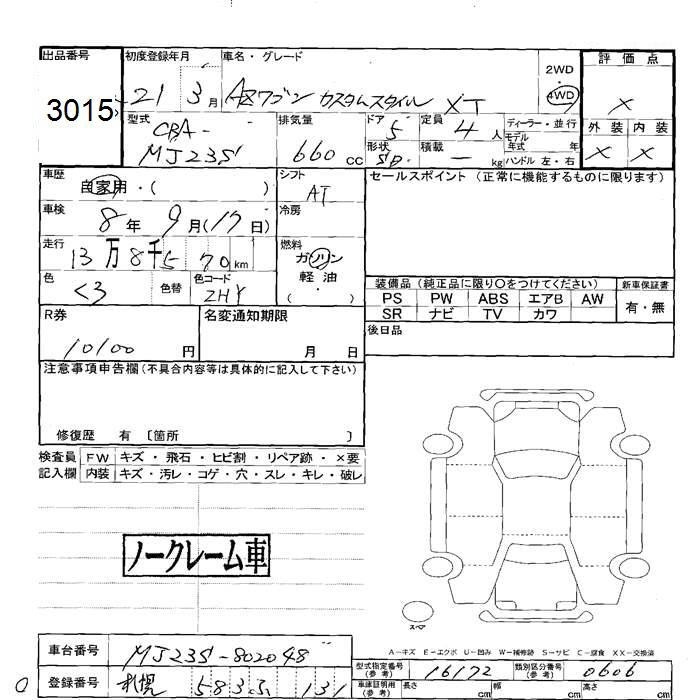 出品番号 初度登録年月 車名・グレード 2WD・4WD 評価点
3015 21 3月 AZワゴン カスタムスタイル XT ×
型式 排気量 ドア 定員 ディーラー・並行 外装 内装
CBA- 5 4人 モデル年式 年 × ×
MJ23S 660cc 形状 5D 積載 ー kg ハンドル 左・右
車歴 自家用・( ) シフト AT セールスポイント(正常に機能するものに限ります)
車検 8年 9月(17日) 冷房
走行 13万8千5 70km 燃料 ガソリン
軽油
( )
色 色替 色コード ZHY
装備品(純正品に限り○をつけてください) 新車保証書
PS PW ABS エアB AW 有・無
SR ナビ TV カワ
R券 10100円 名変通知期限 月 日 後日品
注意事項申告欄(不具合内容等は具体的に記入して下さい)
修復歴 有 〔箇所 〕
検査員 FW キズ・飛石・ヒビ割・リペア跡・×要
記入欄 内装 キズ・汚レ・コゲ・穴・スレ・キレ・破レ
ノークレーム車
スペア
A-キズ E-エクボ U-凹み W-補修跡 S-サビ C-腐食 XX-交換済
車台番号 MJ23S-802048 型式指定番号(参考) 16172 類別区分番号(参考) 0606
登録番号 札幌 583 131 車庫証明用(参考) 長さ cm 幅 cm 高さ cm